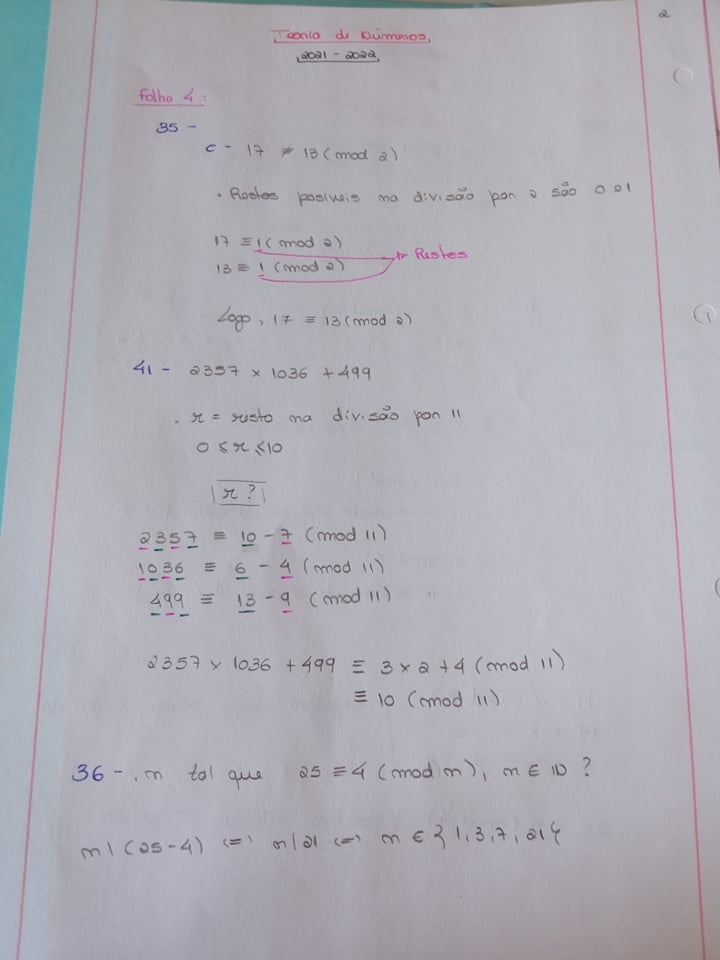 2
Teoria de Números,
2021 - 2022,
Folha 4:
35 -
c - 17 ≢ 13 (mod 2)
. Restos possíveis na divisão por 2 são 0 e 1
17 ≡ 1 (mod 2)
Restos
13 ≡ 1 (mod 2)
Logo, 17 ≡ 13 (mod 2)
41 - 2357 × 1036 + 499
. r = resto na divisão por 11
0 ≤ r ≤ 10
r ?
2357 ≡ 10 - 7 (mod 11)
1036 ≡ 6 - 4 (mod 11)
499 ≡ 13 - 9 (mod 11)
2357 × 1036 + 499 ≡ 3 × 2 + 4 (mod 11)
≡ 10 (mod 11)
36 - . n tal que 25 ≡ 4 (mod n), n ∈ ℕ ?
n | (25-4) (=) n | 21 (=) n ∈ {1, 3, 7, 21}